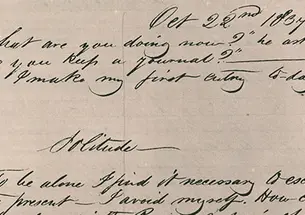 Oct 22nd 1837
What are you doing now?" he as
o you keep a journal?"
I make my first entry to-d
Solitude
To be alone I find it necessary to esc
present — I avoid myself. How